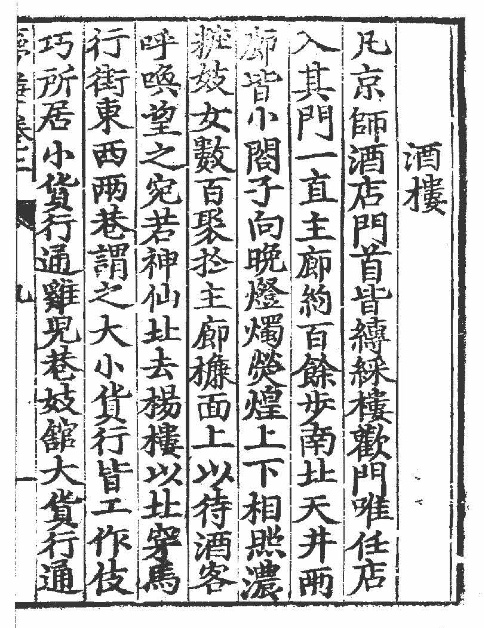 酒樓
凡京師酒店門首皆縛綵樓歡門唯任店
入其門一直主廊約百餘步南北天井兩
廊皆小閤子向晚燈燭熒煌上下相照濃
粧妓女數百聚扵主廊槺面上以待酒客
呼喚望之宛若神仙北去楊樓以北穿馬
行街東西兩巷謂之大小貨行皆工作伎
巧所居小貨行通雞兒巷妓舘大貨行通